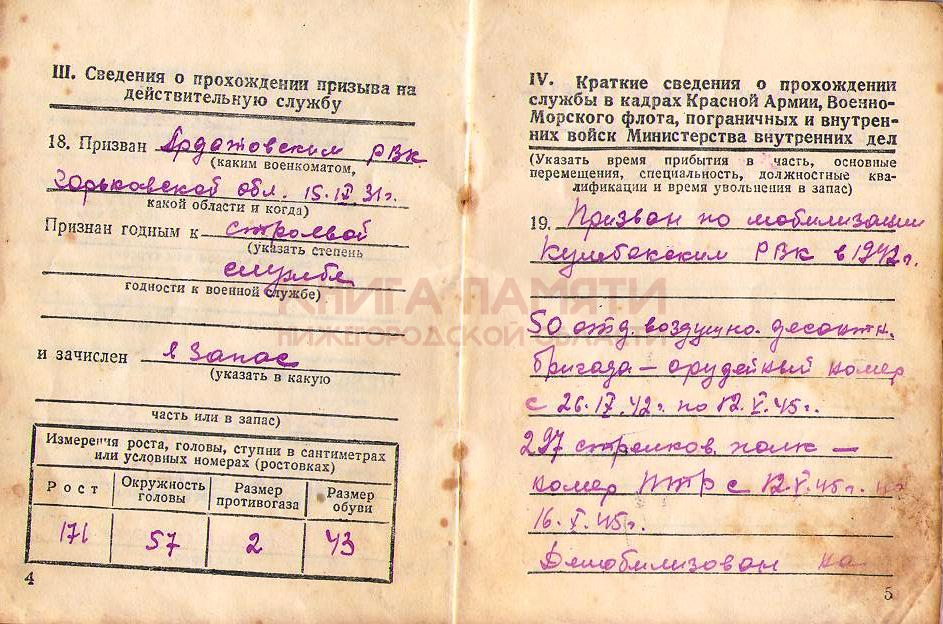 III. Сведения о прохождении призыва на
действительную службу
18. Призван Ардатовским РВК
(каким военкоматом,
Горьковской обл. 15.IX.31г.
какой области и когда)
Признан годным к строевой
(указать степень
службе
годности к военной службе)
и зачислен в запас
(указать в какую
часть или в запас)
Измерения роста, головы, ступни в сантиметрах
или условных номерах (ростовках)
Рост Окружность головы Размер противогаза Размер обуви
171 57 2 43
4
IV. Краткие сведения о прохождении
службы в кадрах Красной Армии, Военно-
Морского флота, пограничных и внутрен-
них войск Министерства внутренних дел
(Указать время прибытия в часть, основные
перемещения, специальность, должностные ква-
лификации и время увольнения в запас)
19. Призван по мобилизации
Кулебакским РВК в 1942г.
50 отд воздушно. десантн.
бригада — орудейный номер
с 26.IV.42г. по 12.V.45г.
297 стрелков. полк —
номер ПТР с 12.V.45г. по
16.X.45г.
Демобилизован на
5
КНИГА ПАМЯТИ
НИЖЕГОРОДСКОЙ ОБЛАСТИ